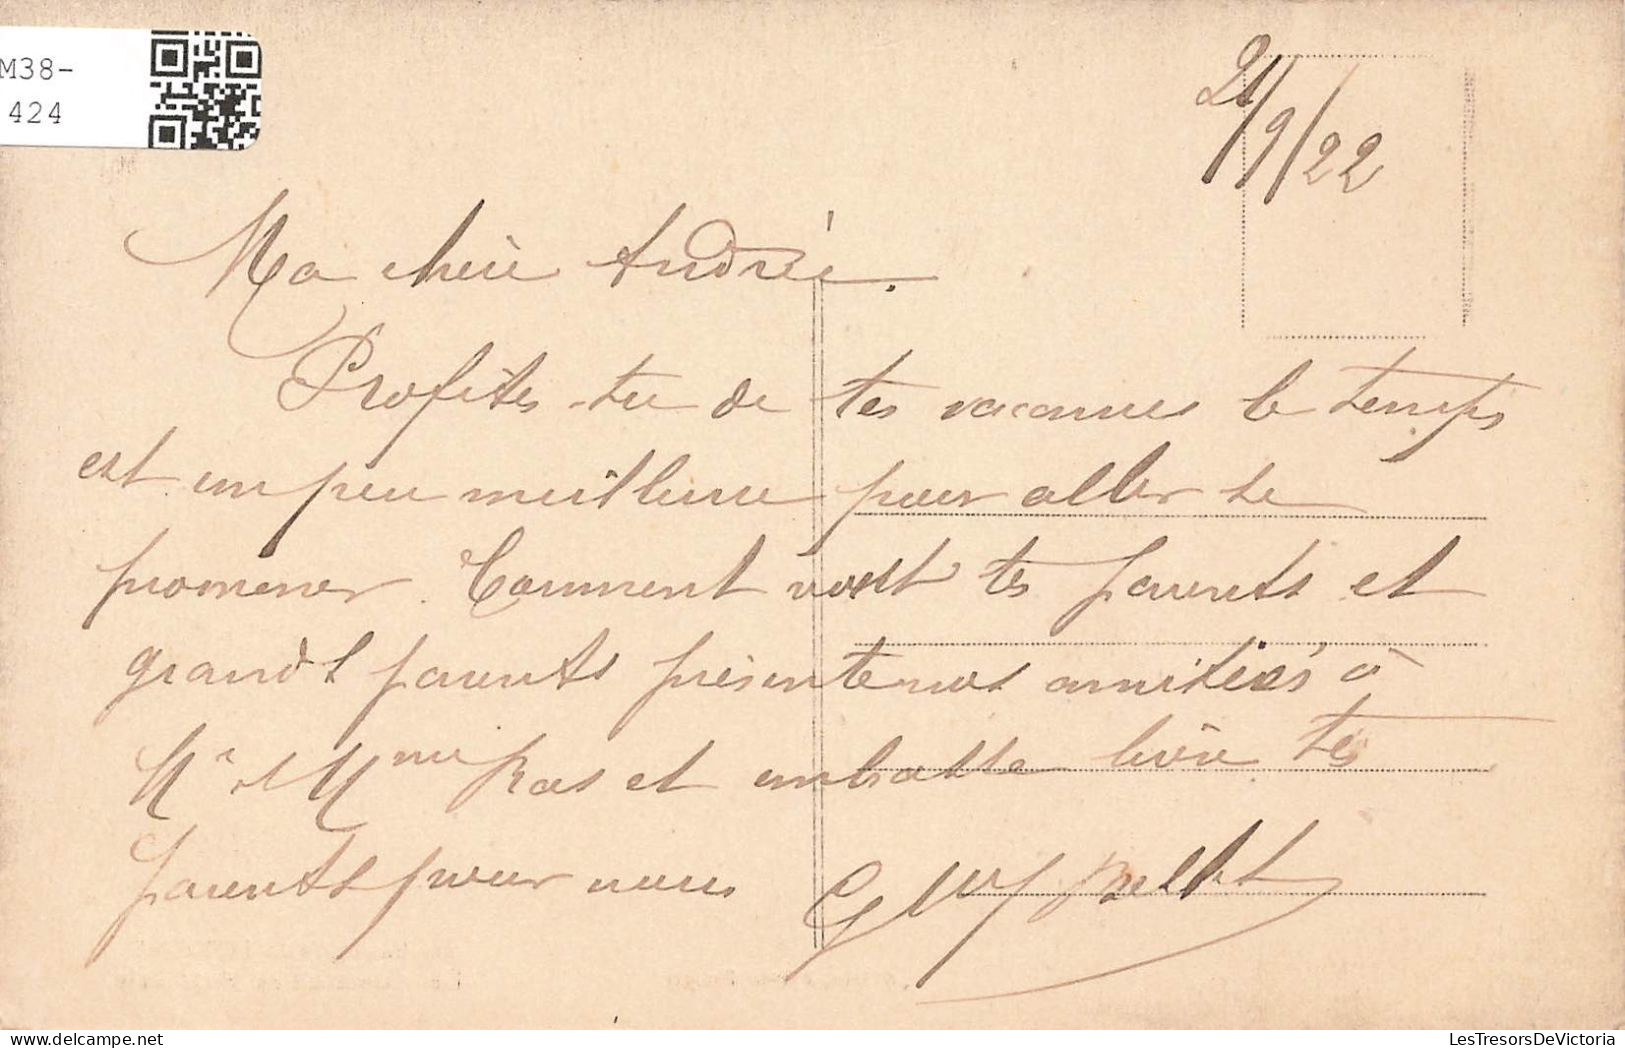 M38-
424
21/9/22
Ma chère Andrée.
Profites-tu de tes vacances le temps
est un peu meilleur pour aller se
promener. Comment vont tes parents et
grands parents présente nos amitiés à
Mr et Mme Ras et embrasse bien tes
parents pour nous
Guy
LesTresorsDeVictoria